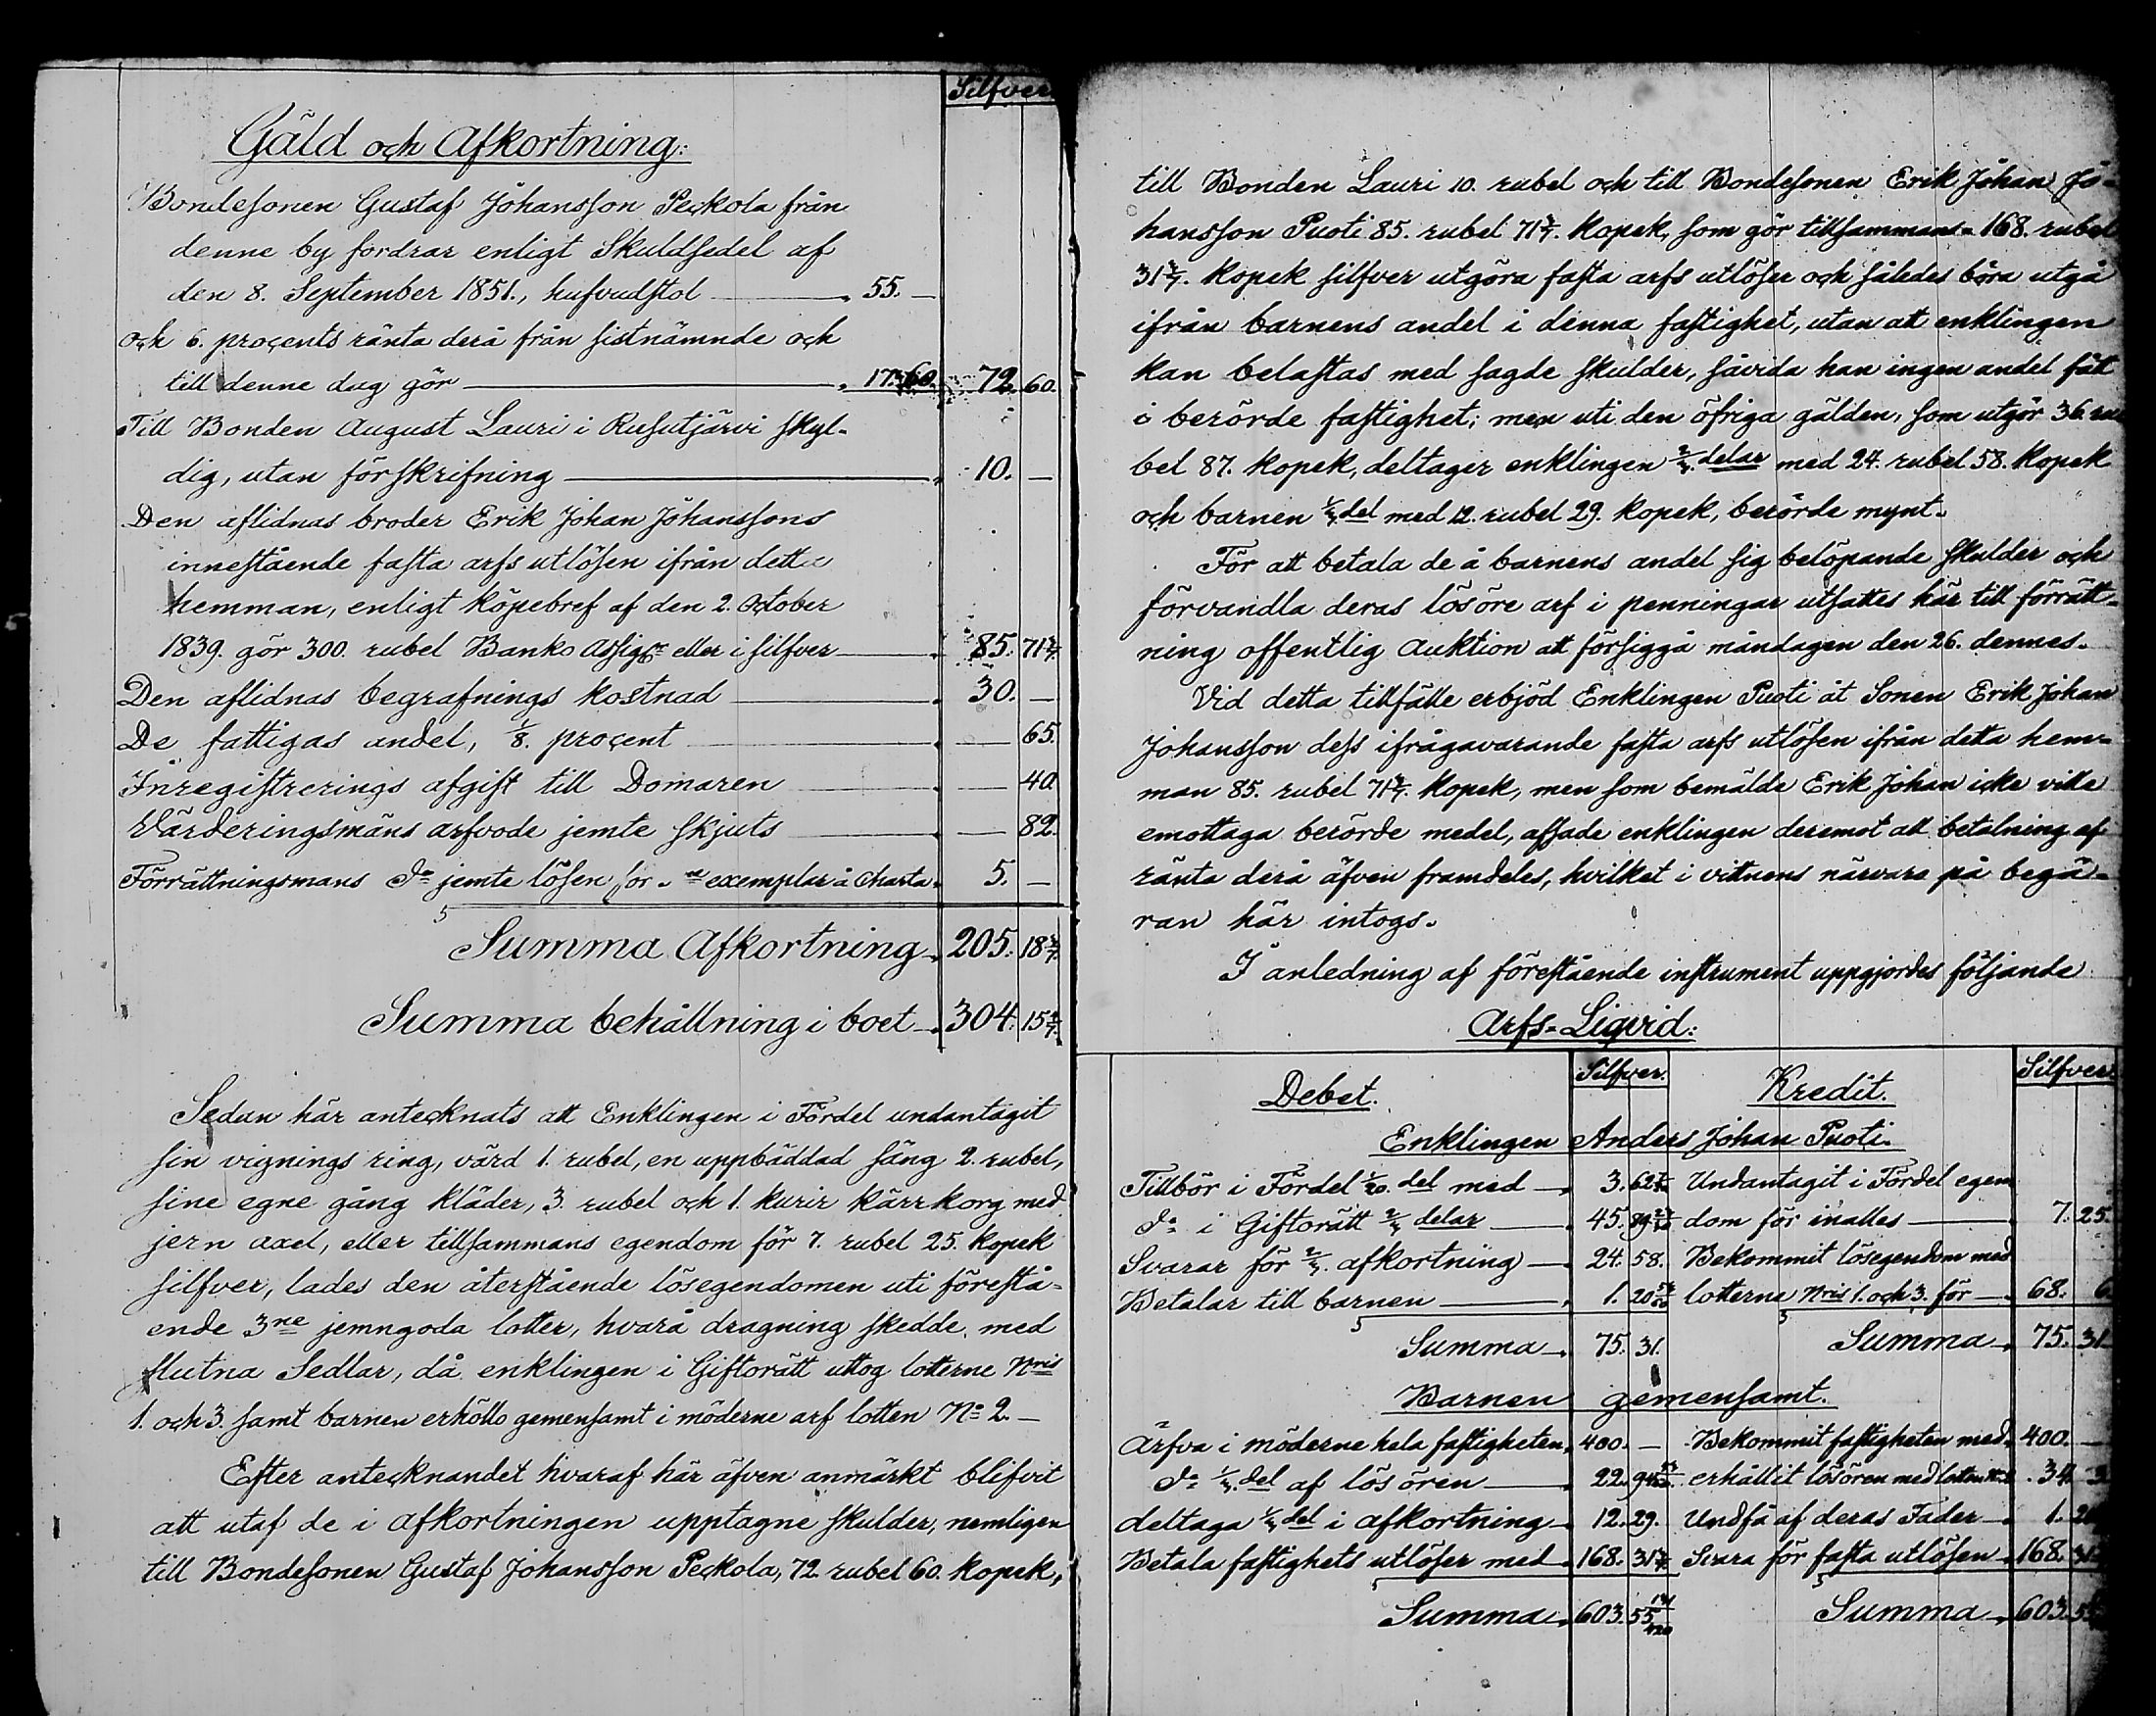 Silfver.
Gäld och Afkortning:
Bondesonen Gustaf Johansson Peckola från
denne by fordrar enligt Skuldsedel af
den 8. September 1851., hufvudstol — 55. —
och 6. procents ränta derå från sistnämnde och
till denne dag gör — 17. 60. 72. 60.
Till Bonden August Lauri i Rusutjärvi skyl-
dig, utan förskrifning — 10. —
Den aflidnas broder Erik Johan Johanssons
innestående fasta arfs utlösen ifrån detta
hemman, enligt köpebref af den 2. October
1839. gör 300. rubel Banko Assig:r eller i silfver — 85. 71 3/7.
Den aflidnas begrafnings kostnad — 30. —
De fattigas andel, 1/8. procent — — 65.
Inregistrerings afgift till Domaren — — 40.
Värderingsmäns arfvode jemte skjuts — — 82.
Förrättningsmans D:o jemte lösen för exemplar å Charta. 5. —
Summa Afkortning. 205. 18 3/7.
Summa behållning i boet. 304. 15 4/7.
Sedan här antecknats att Enklingen i Fördel undantagit
sin vignings ring, värd 1. rubel, en uppbäddad säng 2. rubel,
sine egne gång kläder, 3. rubel och 1. kurir kärrkorg med
jern axel, eller tillsammans egendom för 7. rubel 25. kopek
silfver, lades den återstående lösegendomen uti förestå-
ende 3ne jemngoda lotter, hvarå dragning skedde med
slutna Sedlar, då enklingen i Giftorätt uttog lotterne Nris
1. och 3. samt barnen erhöllo gemensamt i möderne arf lotten No 2. —
Efter antecknandet hvaraf här äfven anmärkt blifvit
att utaf de i afkortningen upptagne skulder, nemligen
till Bondesonen Gustaf Johansson Peckola, 72 rubel 60. kopek,
till Bonden Lauri 10. rubel och till Bondesonen Erik Johan Jo-
hansson Puoti 85. rubel 71 3/7. kopek, som gör tillsammans 168. rubel
31 3/7. kopek silfver utgöra fasta arfs utlöser och således böra utgå
ifrån barnens andel i denna fastighet, utan att enklingen
kan belastas med sagde skulder, såvida han ingen andel fått
i berörde fastighet; men uti den öfriga gälden, som utgör 36. ru
bel 87. kopek, deltager enklingen 2/3. delar med 24. rubel 58. kopek
och barnen 1/3 del med 12. rubel 29. kopek, berörde mynt.
För att betala de å barnens andel sig belöpande skulder och
förvandla deras lösöre arf i penningar utsattes här till förrätt-
ning offentlig Auktion att försiggå måndagen den 26. dennes.
Vid detta tillfälle erbjöd Enklingen Puoti åt Sonen Erik Johan
Johansson dess ifrågavarande fasta arfs utlösen ifrån detta hem-
man 85. rubel 71 3/7. kopek, men som bemälde Erik Johan icke ville
emottaga berörde medel, afsade enklingen deremot all betalning af
ränta derå äfven framdeles, hvilket i vittnens närvaro på begä-
ran här intogs.
I anledning af förestående instrument uppgjordes följande
Arfs-Liqvid:
Debet. Silfver. Kredit. Silfver.
Enklingen Anders Johan Puoti.
Tillbör i Fördel 1/20. del med — 3. Undantagit i Fördel egen
D:o i Giftorätt 2/3 delar — 45. dom för inalles — 7. 25.
Svarar för 2/3. afkortning — 24. 58. Bekommit lösegendom med
Betalar till barnen — 1. lotterna Nris 1. och 3. för — 68. 6.
Summa. 75. 31. Summa. 75. 31.
Barnen gemensamt.
Ärfva i möderne hela fastigheten. 400. — Bekommit fastigheten med. 400. —
D:o 1/3. del af lösören — 22. erhållit lösören med lotten 34. 3
deltaga 1/3 del i afkortning 12. 29. Undfå af deras Fader — 1.
Betala fastighets utlöser med 168. 31 3/7 Svara för fasta utlösen 168. 31
Summa. 603. 55 131/420 Summa. 603.